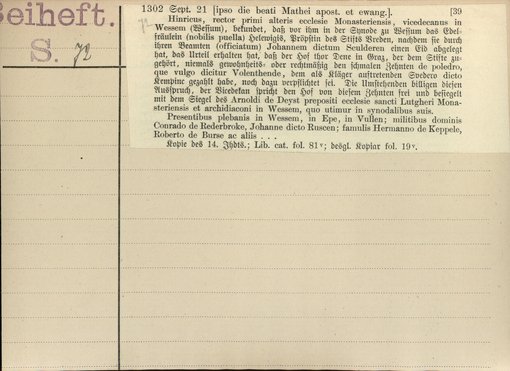 Beiheft.
S. 72
1302 Sept. 21 [ipso die beati Mathei apost. et ewang.]. [39
Hinricus, rector primi alteris ecclesie Monasteriensis, vicedecanus in
Wessem (Wessum), bekundet, daß vor ihm in der Synode zu Wessum das Edel-
fräulein (nobilis puella) Helewigis, Pröpstin des Stifts Vreden, nachdem sie durch
ihren Beamten (officiatum) Johannem dictum Sculderen einen Eid abgelegt
hat, das Urteil erhalten hat, daß der Hof thor Dene in Graz, der dem Stifte zu-
gehört, niemals gewohnheits- oder rechtmäßig den schmalen Zehnten de poledro,
que vulgo dicitur Volenthende, dem als Kläger auftretenden Svedero dicto
Kempinc gezahlt habe, noch dazu verpflichtet sei. Die Umstehenden billigen diesen
Ausspruch, der Vicedekan spricht den Hof von diesem Zehnten frei und besiegelt
mit dem Siegel des Arnoldi de Deyst prepositi ecclesie sancti Lutgheri Mona-
steriensis et archidiaconi in Wessem, quo utimur in synodalibus suis.
Presentibus plebanis in Wessem, in Epe, in Vullen; militibus dominis
Conrado de Rederbroke, Johanne dicto Ruscen; famulis Hermanno de Keppele,
Roberto de Burse ac aliis . . .
Kopie des 14. Jhdts.; Lib. cat. fol. 81v; desgl. Kopiar fol. 19v.